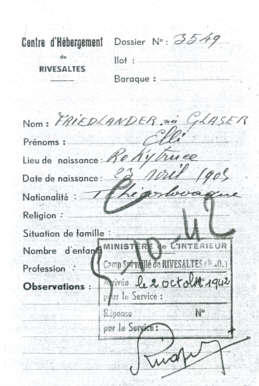 Centre d'Hébergement
de
RIVESALTES
Dossier N°: 3549
Ilot :
Baraque :
Nom : FRIEDLANDER née GLASER
Prénoms : Elli
Lieu de naissance : Rokytnice
Date de naissance : 23 avril 1905
Nationalité : Tchécoslovaque
Religion :
Situation de famille :
Nombre d'enfants
Profession :
Observations :
5-10-42
MINISTÈRE de L'INTÉRIEUR
Camp Surveillé de RIVESALTES (P.-O.)
Arrivée le 2 octobre 1942
pour le Service :
Réponse N°
pour le Service :